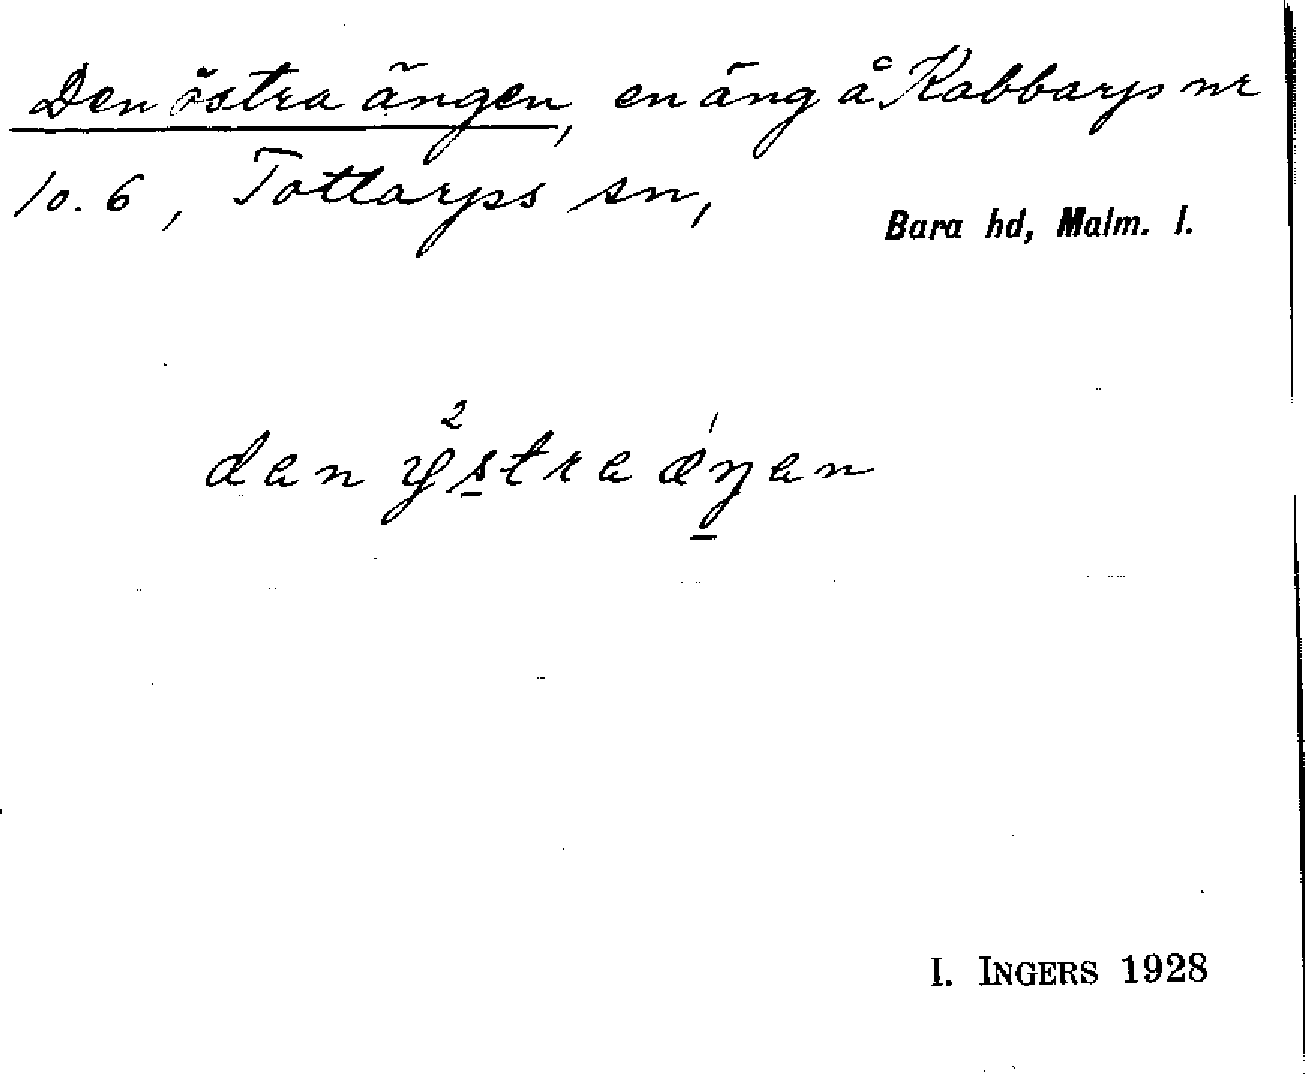 Den östra ängen, en äng å Kabbarps nr
10.6, Tottarps sn,
Bara hd, Malm. l.
2 1
dan ystra æŋan
I. INGERS 1928